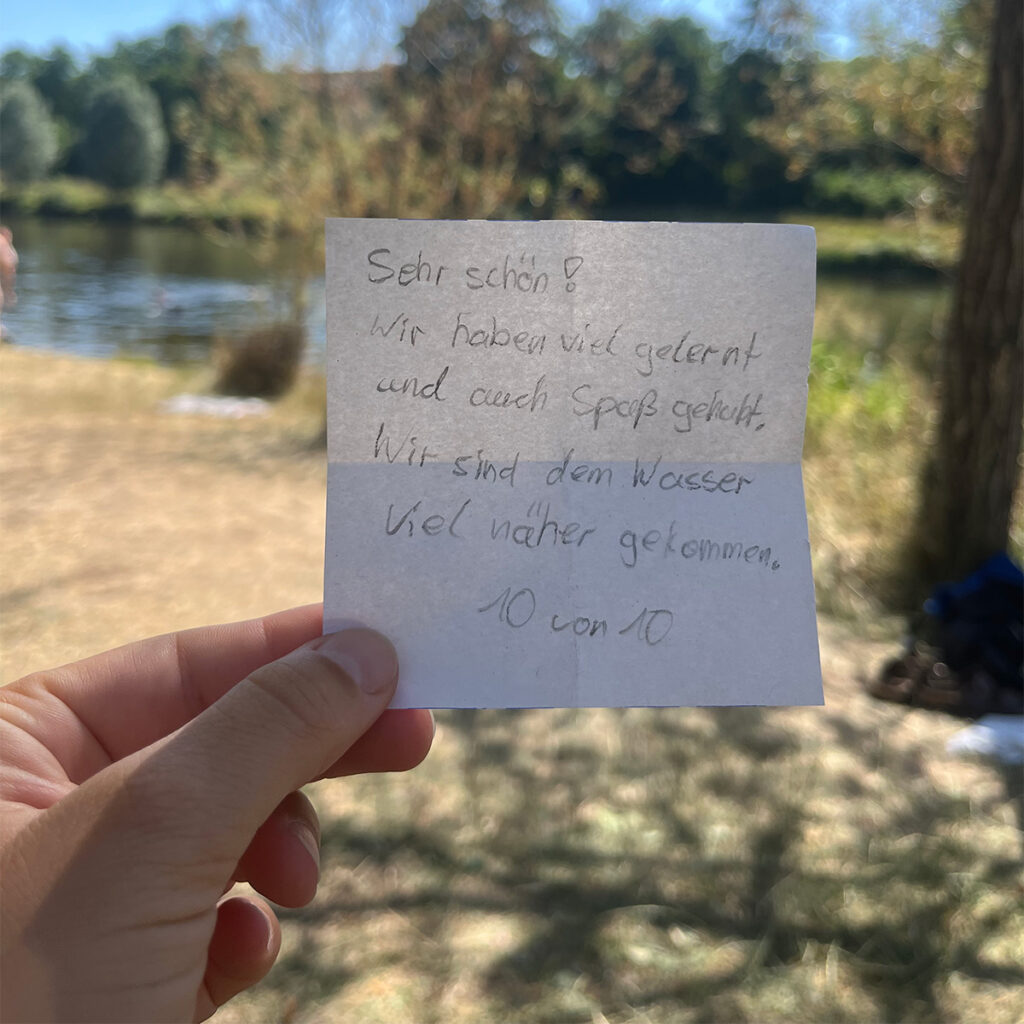 Sehr schön!
Wir haben viel gelernt
und auch Spaß gehabt.
Wir sind dem Wasser
viel näher gekommen.
10 von 10